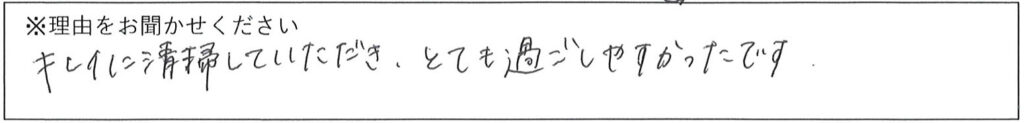 ※理由をお聞かせください
キレイに清掃していただき、とても過ごしやすかったです.